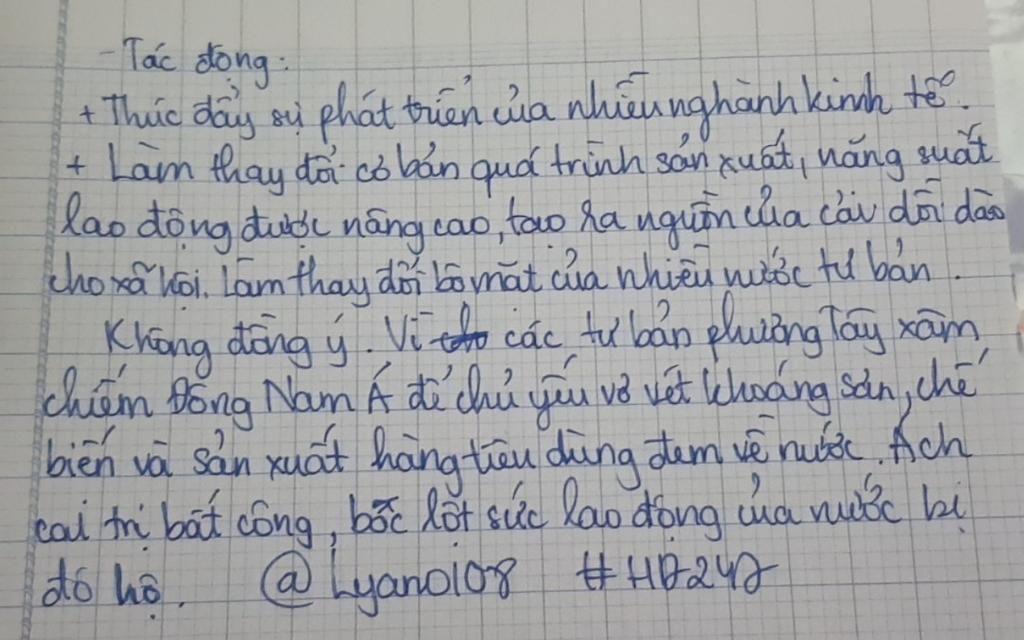 - Tác động:
+ Thúc đẩy sự phát triển của nhiều nghành kinh tế.
+ Làm thay đổi cơ bản quá trình sản xuất, năng suất
lao động được nâng cao, tạo ra nguồn của cải dồi dào
cho xã hội. Làm thay đổi bộ mặt của nhiều nước tư bản.
Không đồng ý. Vì các tư bản phương Tây xâm
chiếm Đông Nam Á để chủ yếu vơ vét khoáng sản, chế
biến và sản xuất hàng tiêu dùng đem về nước. Ách
cai trị bất công, bóc lột sức lao động của nước bị
đô hộ. @Lyano108 #HD247